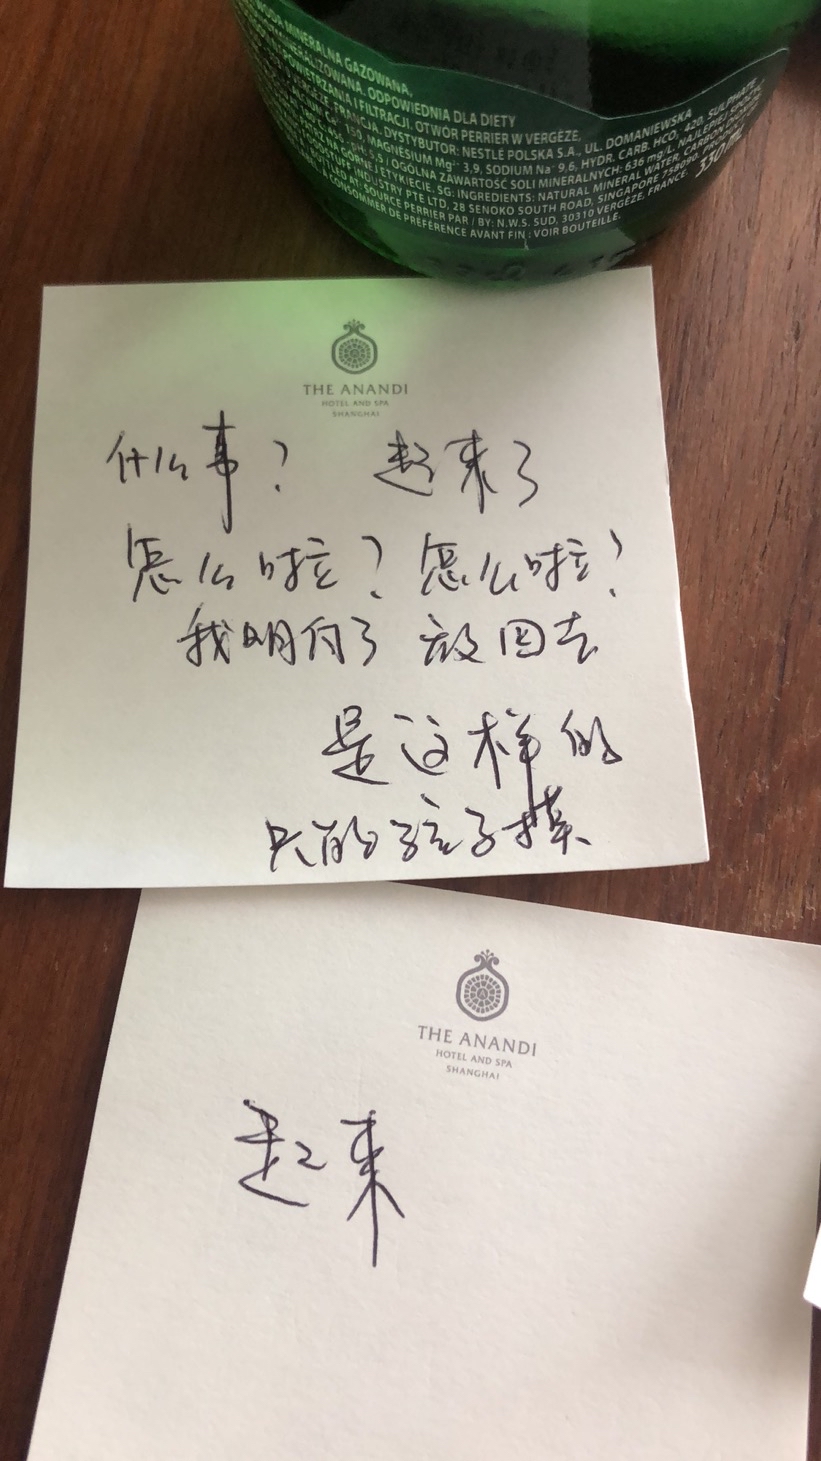 WODA MINERALNA GAZOWANA,
ODPOWIEDNIA DLA DIETY
POWIETRZANIA I FILTRACJI. OTWÓR PERRIER W VERGÈZE,
FRANCJA. DYSTYBUTOR: NESTLÉ POLSKA S.A., UL. DOMANIEWSKA
150, MAGNÉSIUM Mg²⁺ 3,9, SODIUM Na⁺ 9,6, HYDR. CARB. HCO₃ 420, SULPHATE
OGÓLNA ZAWARTOŚĆ SOLI MINERALNYCH: 636 mg/L. NAJLEPIEJ SPOŻYĆ
NA GÓRNEJ ETYKIECIE. SG: INGREDIENTS: NATURAL MINERAL WATER, CARBON DIOXIDE.
FOODSTUFF INDUSTRY PTE LTD, 28 SENOKO SOUTH ROAD, SINGAPORE 758090.
AT: SOURCE PERRIER PAR / BY: N.W.S. SUD, 30310 VERGÈZE, FRANCE.
A CONSOMMER DE PRÉFÉRENCE AVANT FIN : VOIR BOUTEILLE.
330 mL
THE ANANDI
HOTEL AND SPA
SHANGHAI
什么事？ 起来了
怎么啦？怎么啦？
我明白了 放回去
是这样的
孩子
THE ANANDI
HOTEL AND SPA
SHANGHAI
起来